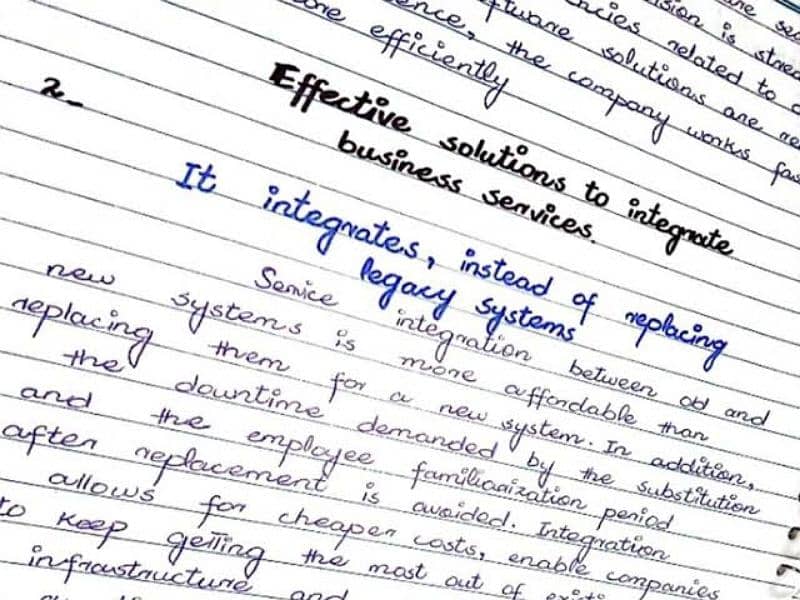 sion is
ncies related to
software solutions are
ence, the company works
efficiently
2_
Effective solutions to integrate
business services.
It integrates, instead of replacing
legacy systems
Service integration between old and
new systems is more affordable than
replacing them for a new system. In addition,
the downtime demanded by the substitution
and the employee familiarization period
after replacement is avoided. Integration
allows for cheaper costs, enable companies
to keep getting the most out of
infraustructure and